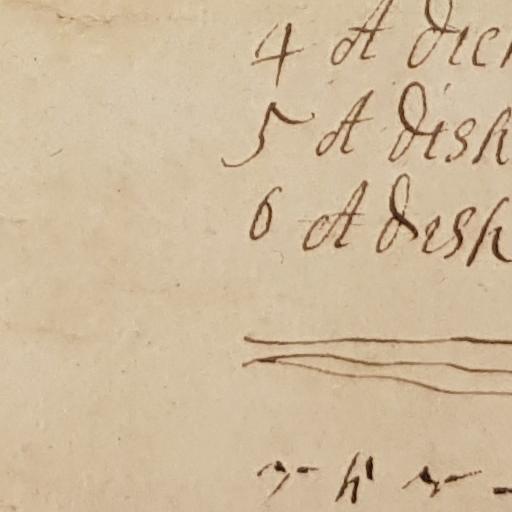 4 A dich
5 A dish
6 A dish